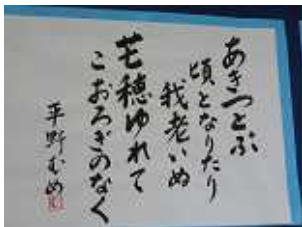 あきつとぶ
頃となりたり
我老いぬ
芒穂ゆれて
こおろぎのなく
平野むめ